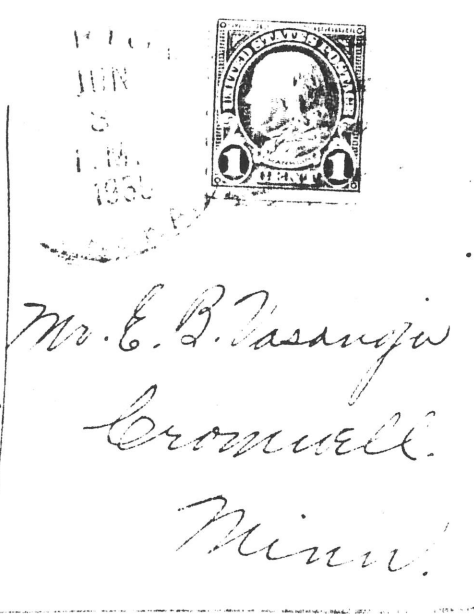 JUN
UNITED STATES POSTAGE
1 CENT 1
Mr. E. B. Vasanoja
Cromwell.
Minn.